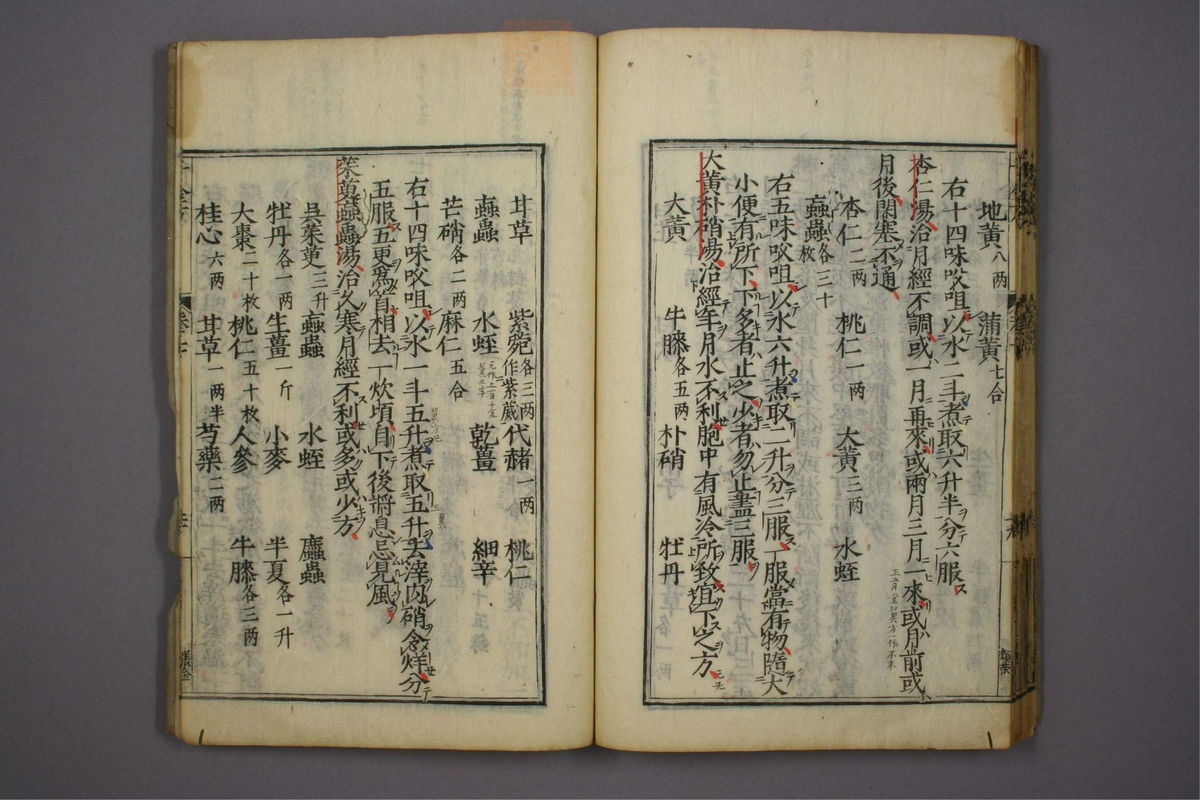 地黃八两 蒲黃七合
右十四味㕮咀以水二斗煮取六升半分六服
杏仁湯治月經不調或一月再來或兩月三月一來或月前或
月後閉塞不通
杏仁二两 桃仁一两 大黃三两 水蛭
蝱蟲各三十枚
右五味㕮咀以水六升煮取二升分三服一服當有物隨大
小便有所下下多者止之少者勿止盡三服
大黃朴硝湯治經年月水不利胞中有風冷所致宜下之方
大黃 牛膝各五两 朴硝 牡丹
甘草 紫菀各三两作紫葳 代赭一两 桃仁
蝱蟲 水蛭 乾薑 細辛
芒硝各二两 麻仁五合
右十四味㕮咀以水一斗五升煮取五升去滓内硝令烊分
五服五更爲首相去一炊頃自下後將息忌見風
茱萸蝱蟲湯治久寒月經不利或多或少方
吳茱萸三升 蝱蟲 水蛭 䗪蟲
牡丹各一两 生薑一斤 小麥 半夏各一升
大棗二十枚 桃仁五十枚 人參 牛膝各三两
桂心六两 甘草一两半 芍藥二两